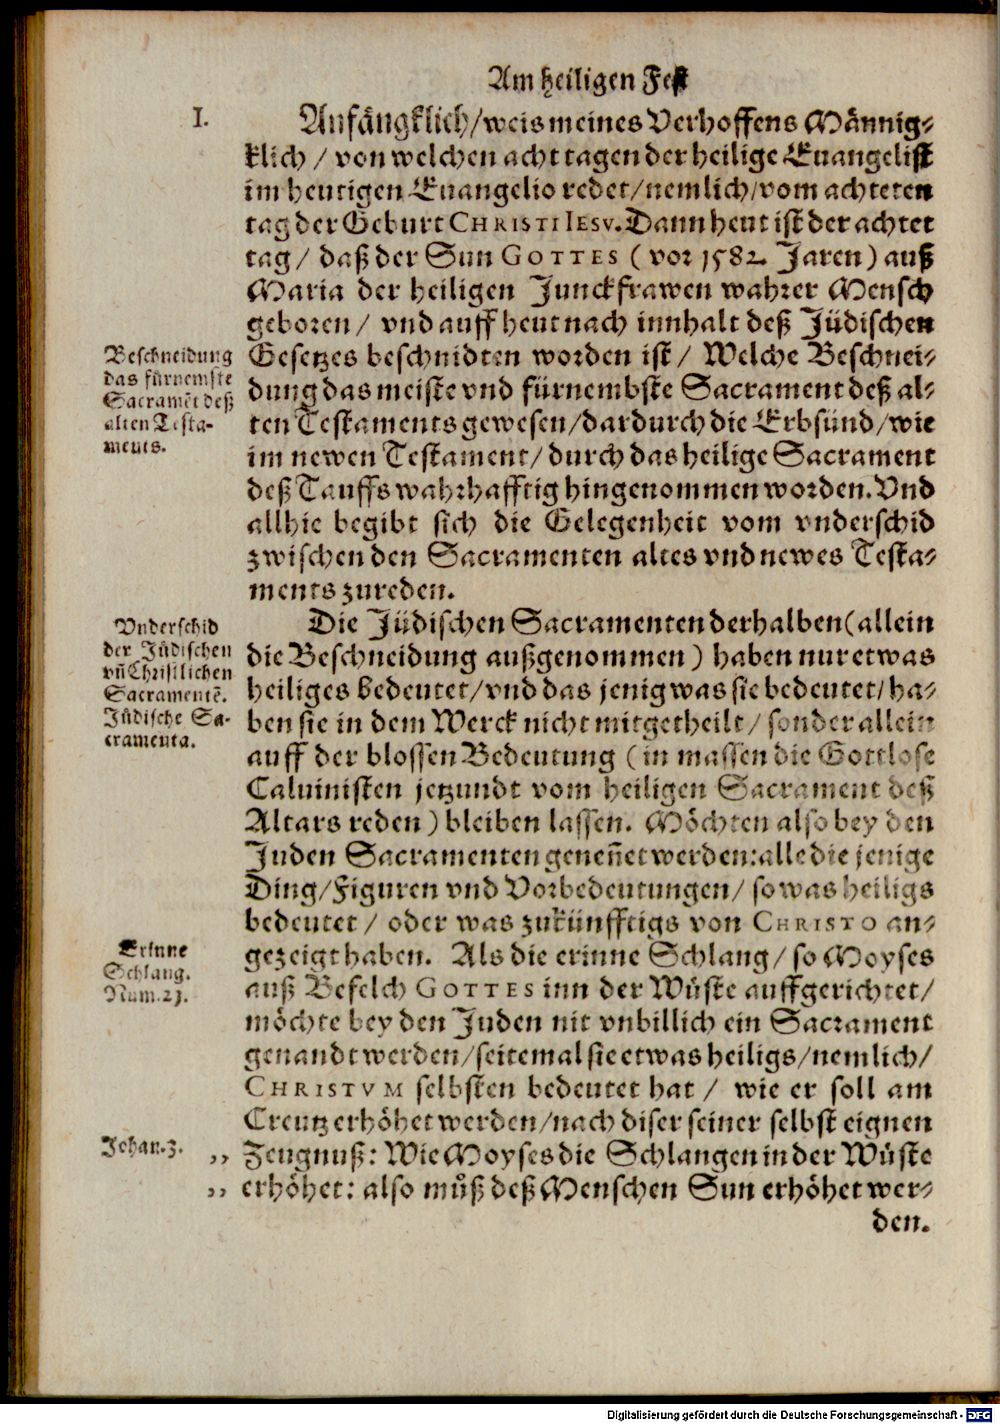 Am heiligen Fest
I.
Anfängklich/weis meines Verhoffens Männig-
klich / von welchen acht tagen der heilige Euangelist
im heutigen Euangelio redet/nemlich/vom achteten
tag der Geburt CHRISTI IESV. Dann heut ist der achtet
tag / daß der Sun GOTTES ( vor 1582. Jaren ) auß
Maria der heiligen Junckfrawen wahrer Mensch
geboren / vnd auff heut nach innhalt deß Jüdischen
Gesetzes beschnidten worden ist / Welche Beschnei-
dung das meiste vnd fürnembste Sacrament deß al-
ten Testaments gewesen/dardurch die Erbsünd/wie
im newen Testament/durch das heilige Sacrament
deß Tauffs wahrhafftig hingenommen worden. Vnd
allhie begibt sich die Gelegenheit vom vnderschid
zwischen den Sacramenten altes vnd newes Testa-
ments zureden.
Beschneidung
das fürnemste
Sacramēt deß
alten Testa-
ments.
Die Jüdischen Sacramenten derhalben (allein
die Beschneidung außgenommen ) haben nur etwas
heiliges bedeutet/vnd das jenig was sie bedeutet/ha-
ben sie in dem Werck nicht mitgetheilt / sonder allein
auff der blossen Bedeutung ( in massen die Gottlose
Caluinisten jetzundt vom heiligen Sacrament deß
Altars reden ) bleiben lassen. Möchten also bey den
Juden Sacramenten genen̄et werden: alle die jenige
Ding/Figuren vnd Vorbedeutungen/ so was heiligs
bedeutet / oder was zukünfftigs von CHRISTO an-
gezeigt haben. Als die erinne Schlang / so Moyses
auß Befelch GOTTES inn der Wüste auffgerichtet/
möchte bey den Juden nit vnbillich ein Sacrament
genandt werden/seitemal sie etwas heiligs/nemlich/
CHRISTVM selbsten bedeutet hat / wie er soll am
Creutz erhöhet werden/nach diser seiner selbst eignen
,, Zeugnuß: Wie Moyses die Schlangen in der Wüste
,, erhöhet: also muß deß Menschen Sun erhöhet wer-
den.
Vnderschid
der Jüdischen
vn̄ Christlichen
Sacramentē.
Jüdische Sa-
cramenta.
Erinne
Schlang.
Num. 21.
Johan. 3.
Digitalisierung gefördert durch die Deutsche Forschungsgemeinschaft - DFG